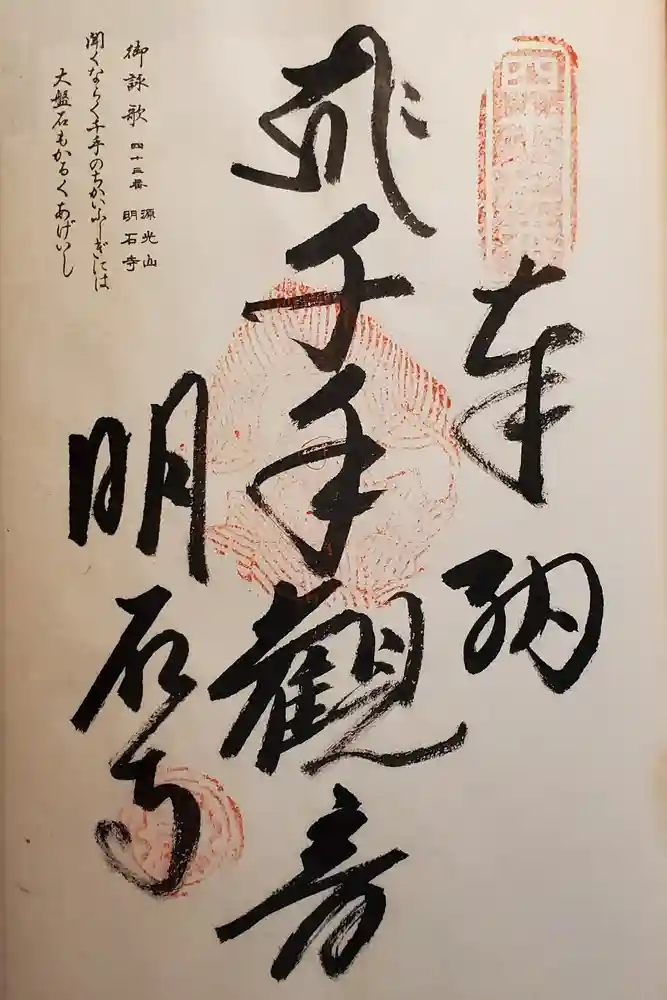 奉納
千手観音
明石寺
御詠歌 四十三番 源光山 明石寺
聞くならく千手のちかいふしぎには
大盤石もかるくあげいし